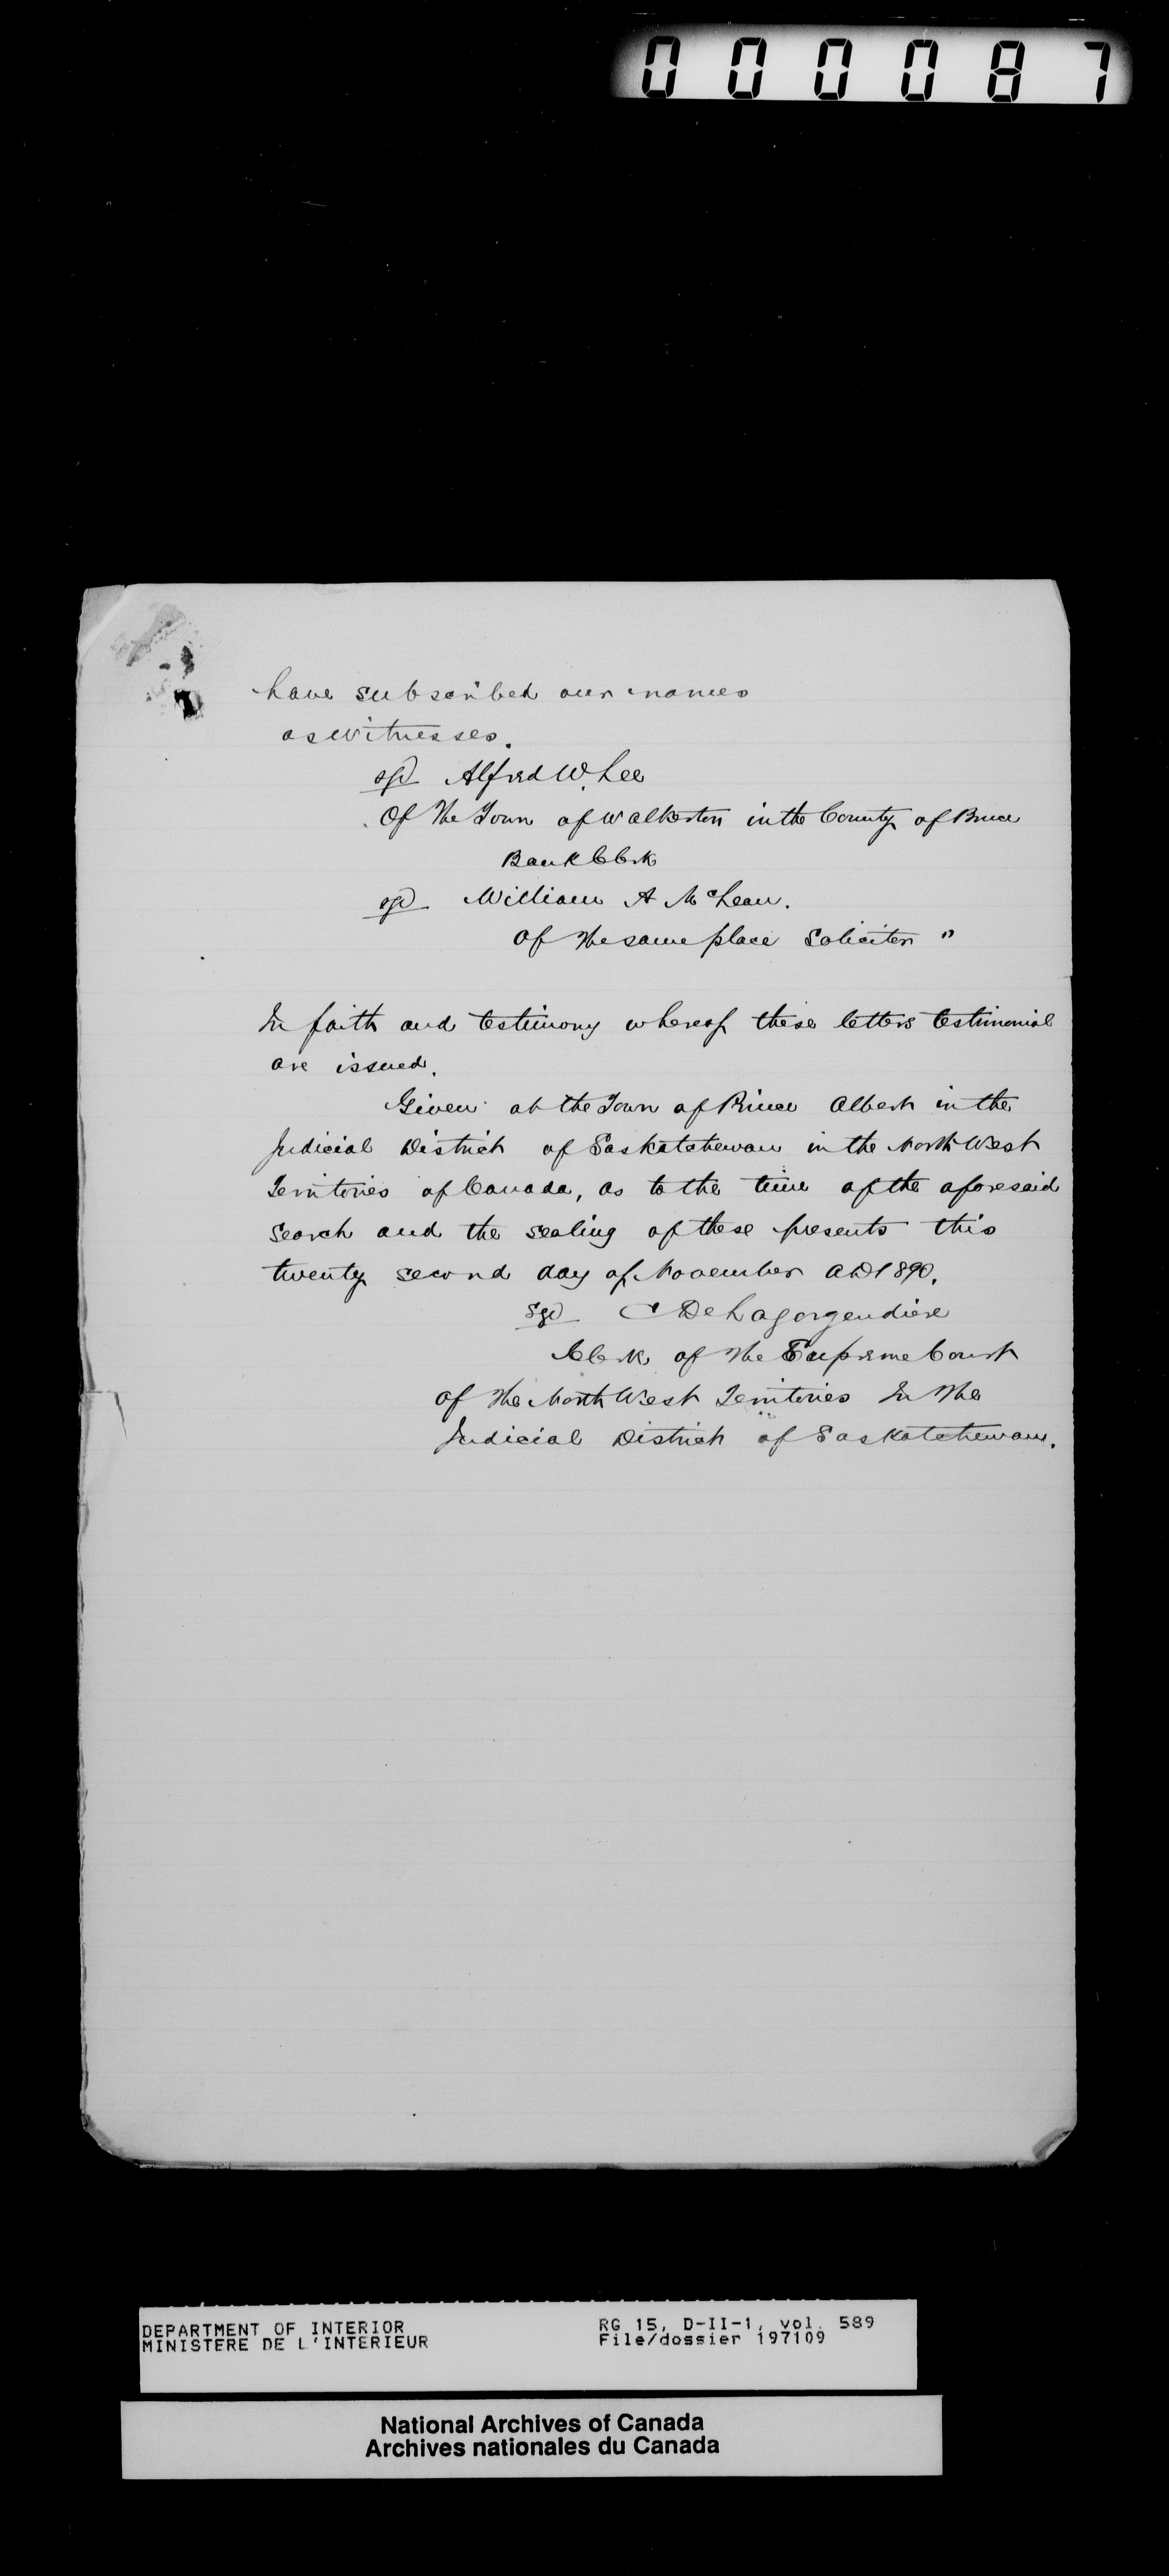 000087
have subscribed our names
as witnesses.
sgd Alfred W. Lee
Of the Town of Walkerton in the County of Bruce
Bank Clerk
sgd William A McLean.
Of the same place Soliciter "
In faith and testimony whereof these letters testimonial
are issued.
Given at the Town of Prince Albert in the
Judicial District of Saskatchewan in the North West
Territories of Canada, as to the time of the aforesaid
search and the sealing of these presents this
twenty second day of November AD 1890.
Sgd C De Lagorgendiere
Clerk of the Supreme Court
of the North West Territories In the
Judicial District of Saskatchewan.
DEPARTMENT OF INTERIOR RG 15, D-II-1, vol. 589
MINISTERE DE L'INTERIEUR File/dossier 197109
National Archives of Canada
Archives nationales du Canada